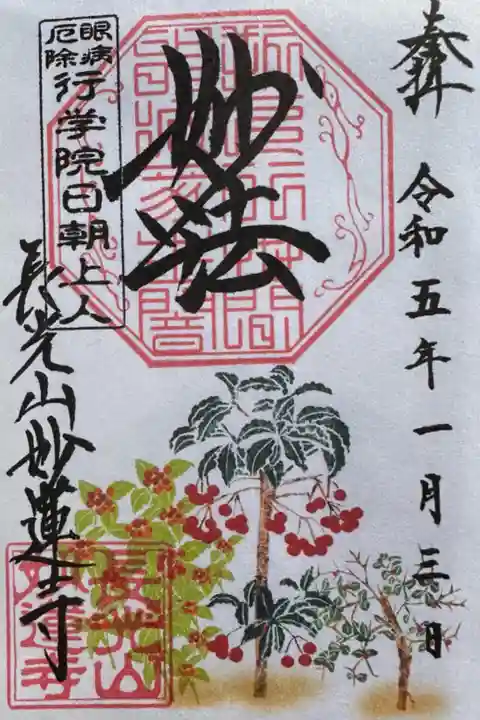 奉拝
令和五年一月三日
妙法
眼病
厄除
行学院日朝上人
長光山妙蓮寺
長光山
妙蓮寺